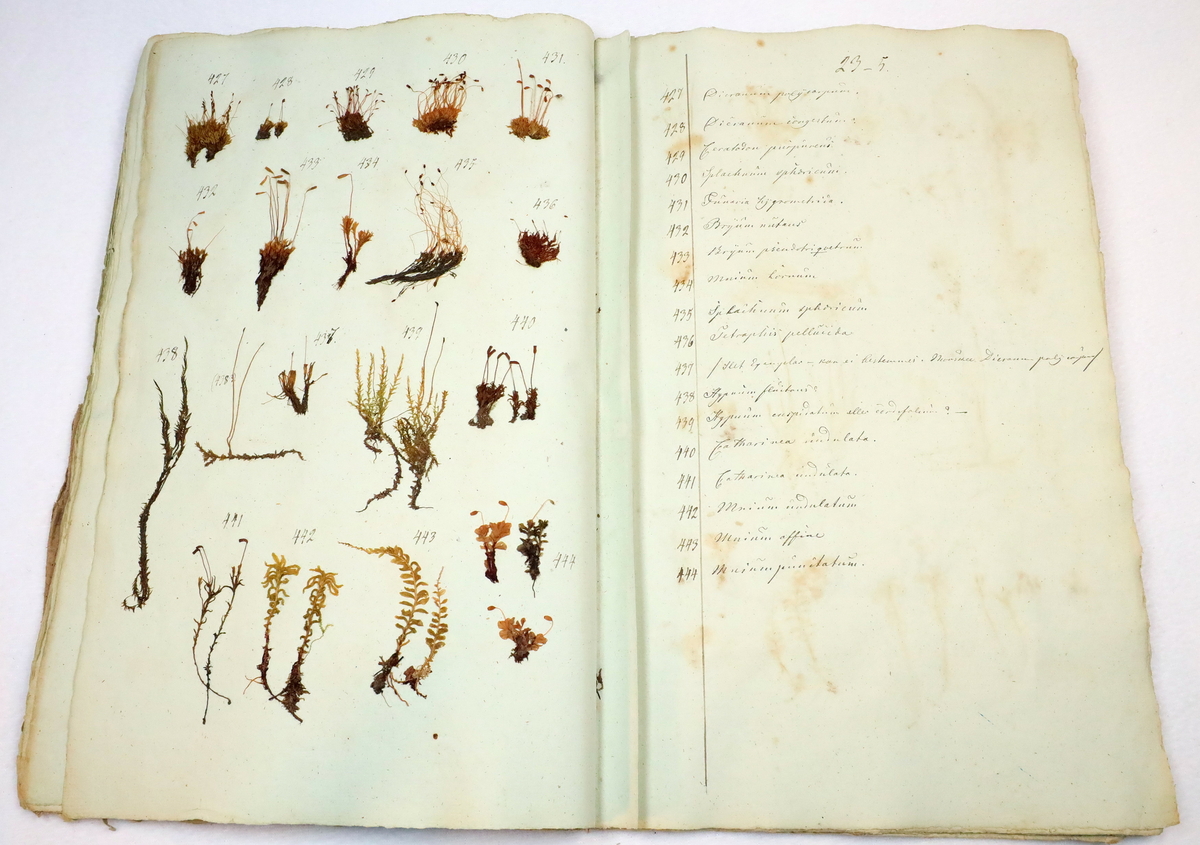 427
428
429
430
431.
432
433
434
435
436
438
(438)
437.
439
440
441
442
443
444
23-5.
427 Dicranum polycarpum.
428 Dicranum congestum?
429 Ceratodon purpureus
430 Splachnum sphæricum.
431 Funaria hygrometrica.
432 Bryum nutans
433 Bryum pseudotriquetrum
434 Mnium
435 Splachnum sphæricum
436 Tetraphis pellucida
437 Dicranum
438 Hypnum fluitans?
439 Hypnum cuspidatum eller cordifolium? —
440 Catharinea undulata.
441 Catharinea undulata.
442 Mnium undulatum
443 Mnium affine
444 Mnium punctatum.